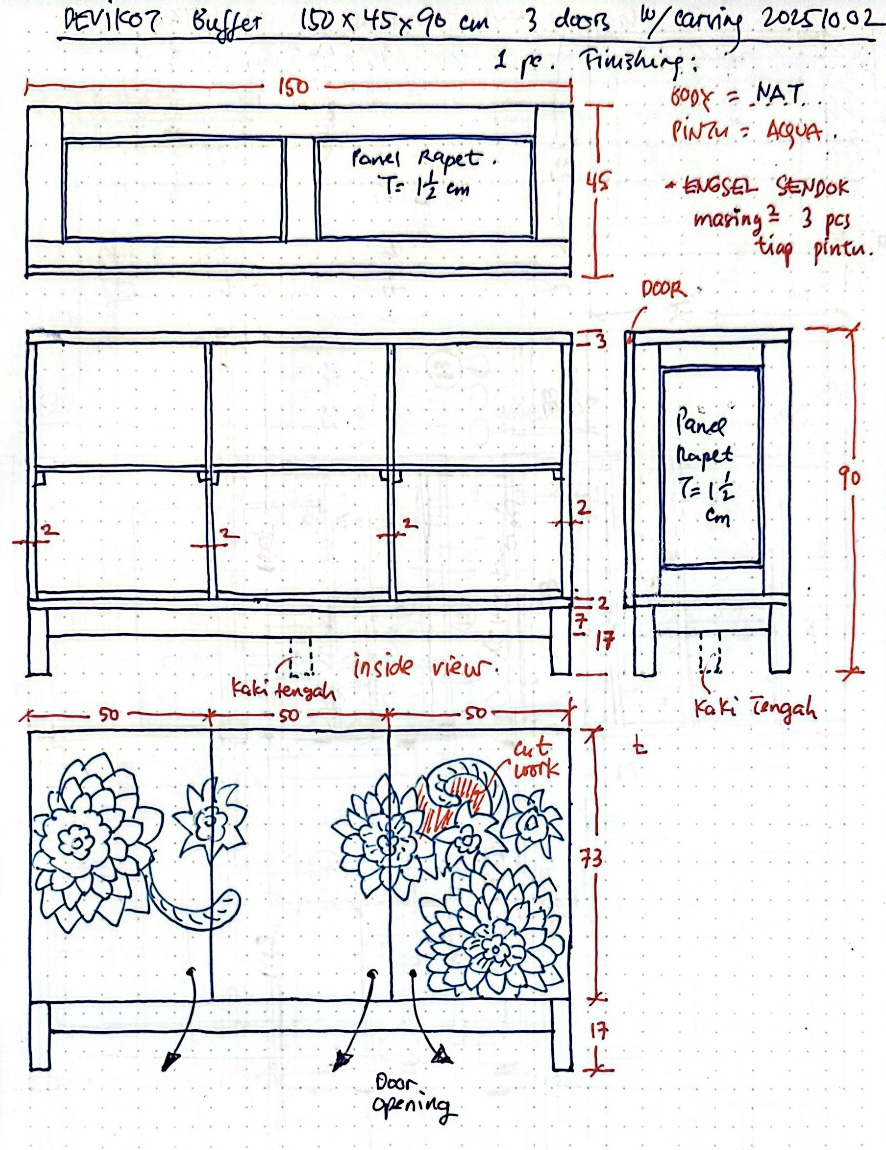 DEVIK07 Buffet 150 x 45 x 90 cm 3 doors w/ carving 20251002
1 pc. Finishing:
BODY = NAT.
PINTU = ACQUA.
* ENGSEL SENDOK
masing² 3 pcs
tiap pintu.
150
Panel Rapet.
T= 1½ cm
45
DOOR
3
Panel
Rapet
T= 1½
cm
90
2
2
2
2
2
7
17
Kaki tengah
inside view.
Kaki Tengah
50
50
50
t
cut
work
73
17
Door
opening